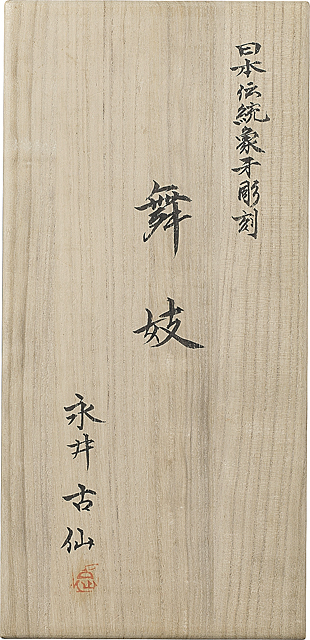 日本伝統象牙彫刻
舞妓
永井古仙